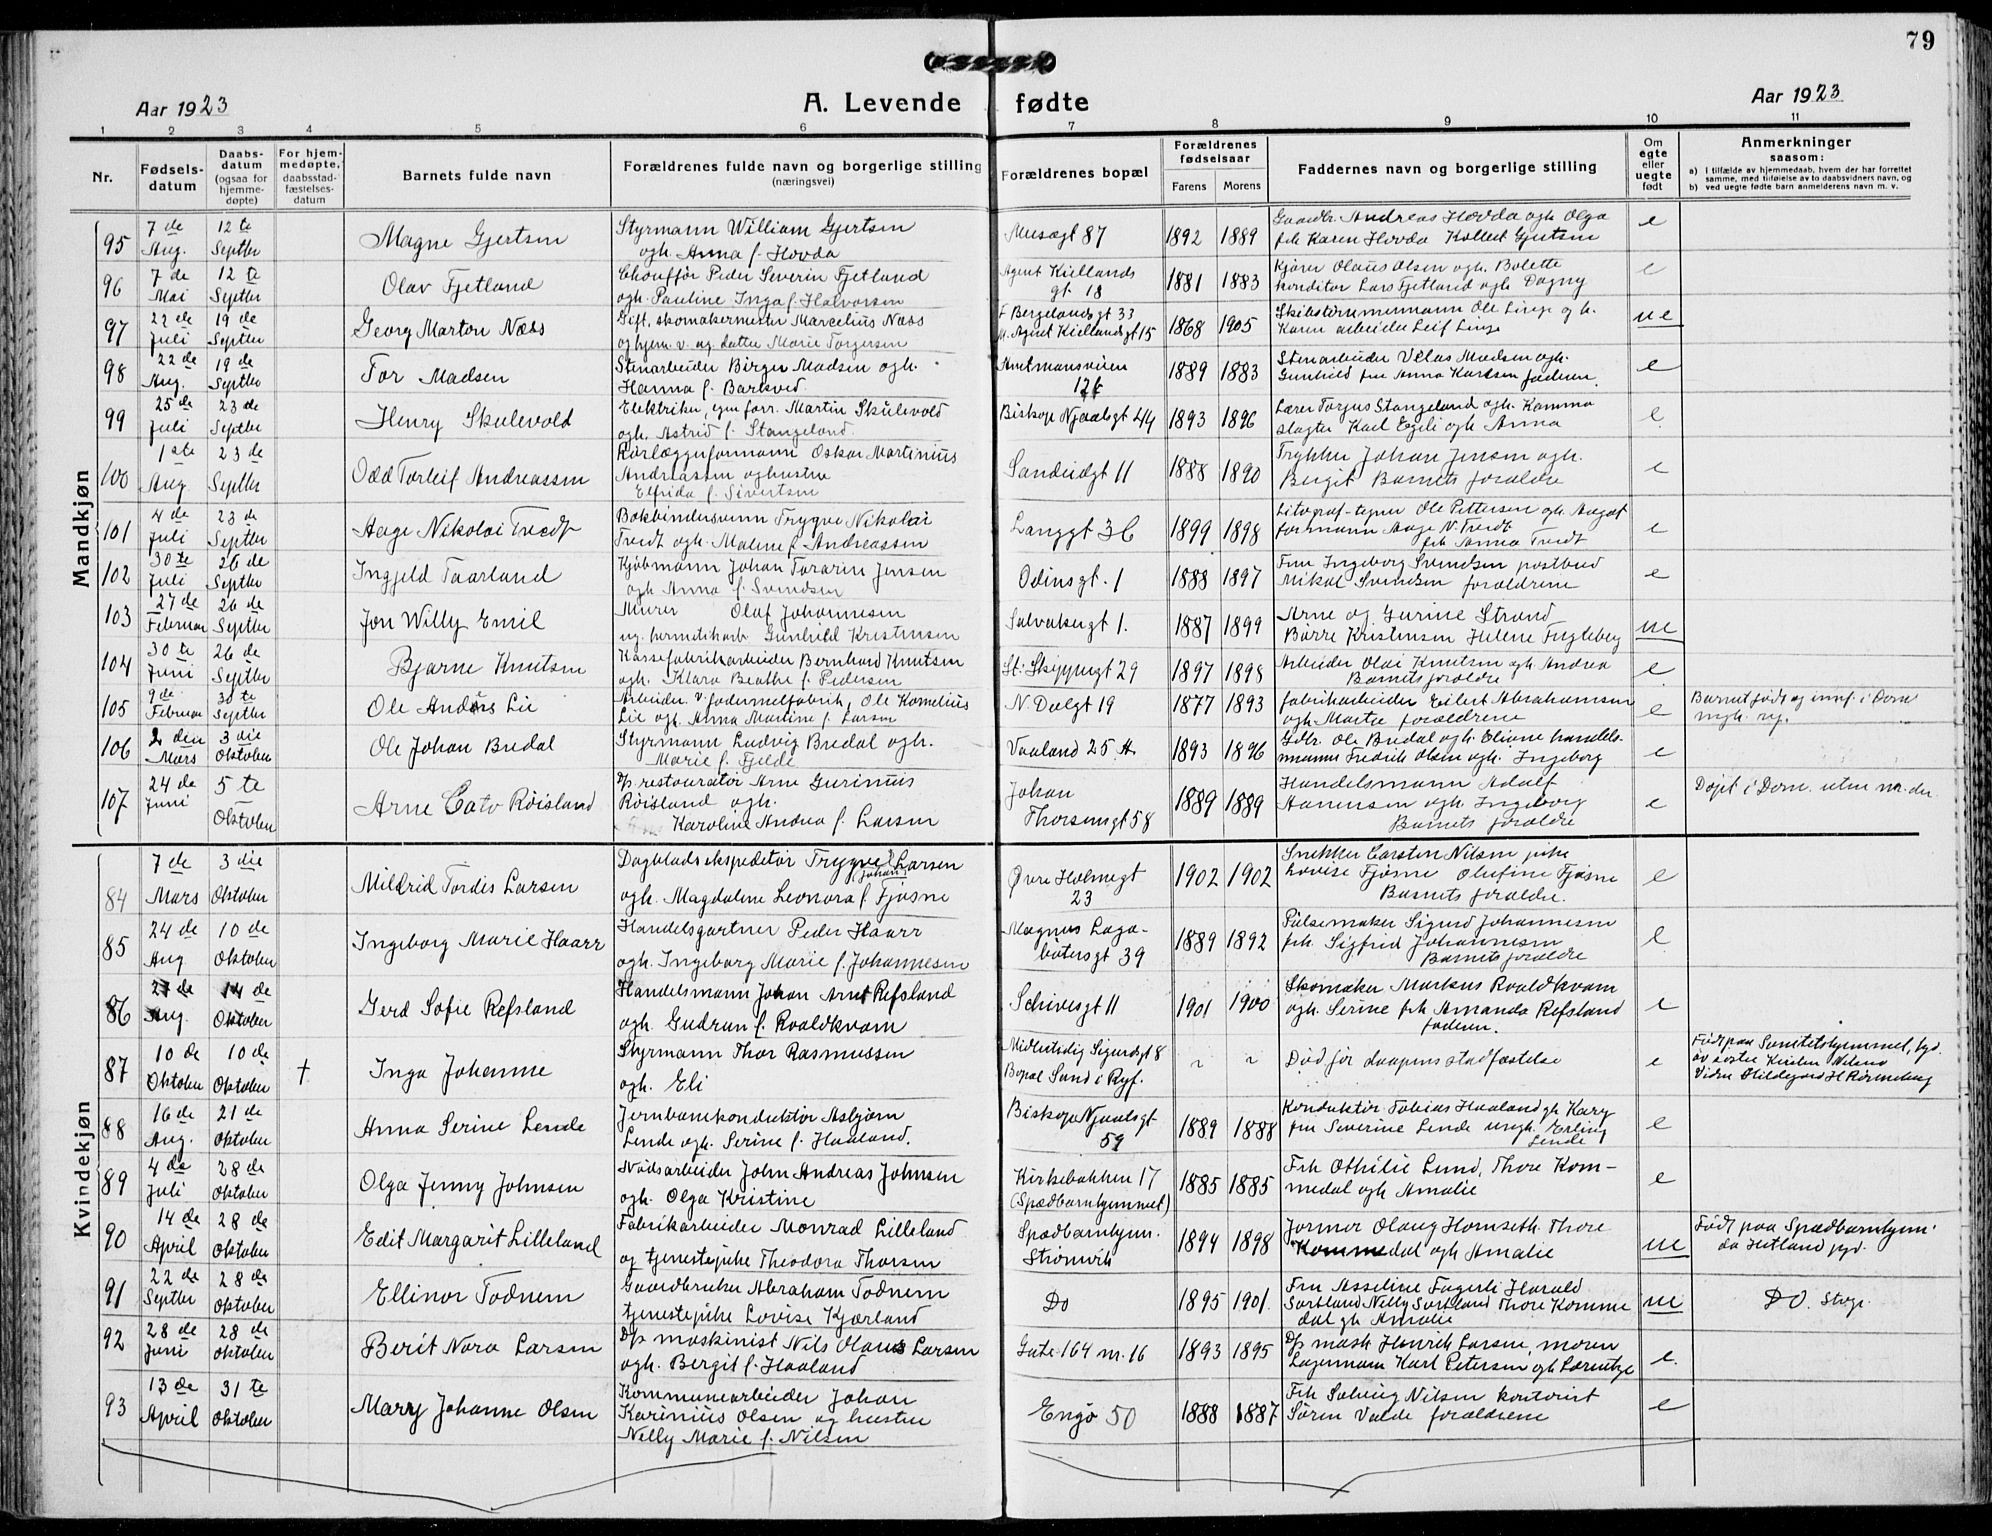 79
Aar 1923
A. Levende fødte
Aar 1923
1 2 3 4 5 6 7 8 9 10 11
Nr.
Fødsels-
datum
Daabs-
datum
(ogsaa for
hjemme-
døpte)
For hjem-
medøpte,
daabsstad-
fæstelses-
datum
Barnets fulde navn
Forældrenes fulde navn og borgerlige stilling
(næringsvei)
Forældrenes bopæl
Forældrenes
fødselsaar
Farens Morens
Faddernes navn og borgerlige stilling
Om
egte
eller
uegte
født
Anmerkninger
saasom:
a) I tilfælde av hjemmedaab, hvem der har forrettet
samme, med tilføielse av to daabsvidners navn, og
b) ved uegte fødte barn anmelderens navn m. v.
Mandkjøn
95 7de Aug. 12te Septbr Magne Gjertsen
Styrmann William Gjertsen
ogh. Anna f. Hovda
Musægt 87 1892 1889
Gaardbr. Andreas Hovda ogh Olga
frk Karen Hovda Kolbert Gjertsen
e
96 7de Mai 12te Septbr Olav Fjetland
Chauffør Peder Severin Fjetland
ogh. Pauline Inga f. Halvorsen
Agent Kiellands
gt. 18 1881 1883
Kjører Olaus Olsen ogh. Bolette
konditor Lars Fjetland ogh Dagny
e
97 22de Juli 19de Septbr Georg Marton Næss
Gift, skomakermester Marcelius Næss
og hjem. v. ug. datter Marie Torgersen
F Bergelandsgt 33
M. Agent Kiellandsgt 15 1868 1905
Skibstømmermann Ole Linge ogh.
Karen arbeider Leif Linge
ue
98 22de Aug. 19de Septbr Tor Madsen
Stenarbeider Birger Madsen ogh.
Hanna f. Barkved
Amtmansveien
12 1889 1883
Stenarbeider Velas Madsen ogh.
Gunhild fru Anna Karlsen faderen.
e
99 25de Juli 23de Septbr Henry Skulevold
Elektriker, egen forr. Martin Skulevold
ogh. Astrid f. Stangeland.
Biskop Njaalsgt 44 1893 1896
Lærer Torjus Stangeland ogh. Kamma
slagter Karl Egeli ogh Anna
e
100 1ste Aug. 23de Septbr Odd Torleif Andreassen
Rørlæggerformann Oskar Martinius
Andreassen oghustru
Elfrida f. Sivertsen
Sandeidgt 11 1888 1890
Trykker Johan Jensen ogh.
Bergit Barnets forældre
e
101 4de Juli 23de Septbr Aage Nikolai Tvedt
Bokbindersvenn Trygve Nikolai
Tvedt ogh. Malene f. Andreassen
Langgt 36 1899 1898
Litograf-tegner Ole Pettersen ogh. Aagot
formann Aage N. Tvedt
frk Sanna Tvedt
e
102 30te Juli 26de Septbr Ingjeld Taarland
Kjøbmann Johan Torarin Jensen
ogh Anna f. Svendsen
Odinsgt. 1 1888 1897
Fru Ingeborg Svendsen postbud
Mikal Svendsen forældrene
e
103 27de Februar 26de Septbr Jon Willy Emil
Murer Olaf Johannesen
ug. hermetikarb Gunhild Kristensen
Solvakergt 1. 1887 1899
Arne og Gurine Strand
Børre Kristensen Helene Fugleberg
ue
104 30te Juni 26de Septbr Bjarne Knutsen
Kassefabrikarbeider Bernhard Knutsen
ogh. Klara Beathe f. Pedersen
St. Skippergt 29 1897 1898
Arbeider Olai Knutsen ogh Andrea
Barnets forældre
e
105 9de Februar 30te Septbr Ole Anders Lie
Arbeider v. fodermelfabrik, Ole Kornelius
Lie ogh. Anna Martine f. Larsen
N. Dalgt 19 1877 1893
fabrikarbeider Eilert Abrahamsen
ogh. Marta forældrene
e
Barnet født og innf. i Dom
mgh. reg.
106 2den Mars 3die Oktober Ole Johan Bredal
Styrmann Ludvig Bredal ogh.
Marie f. Fjelde
Vaaland 25 A 1893 1896
Gdbr. Ole Bredal ogh. Eliane handels-
mann Fredrik Olsen ogh. Ingeborg
e
107 24de Juni 5te Oktober Arne Cato Røisland
D/p restauratør Arne Gurinius
Røisland ogh.
Karoline Andrea f. Larsen
Johan
Thorsensgt 58 1889 1889
Handelsmann Adolf
Aanensen ogh. Ingeborg
Barnets forældre
e
Døpt i Dom.
Kvindekjøn
84 7de Mars 3die Oktober Mildrid Tordis Larsen
Dagbladsekspeditør Trygve Johan Larsen
ogh. Magdalene Leonora f. Fjøsne
Øvre Holmegt
23 1902 1902
Snekker Carsten Nilsen pike
Lovise Fjøsne Olufine Fjøsne
Barnets forældre.
e
85 24de Aug 10de Oktober Ingeborg Marie Haarr
Handelsgartner Peder Haarr
ogh. Ingeborg Marie f. Johannesen
Magnus Laga-
bøtersgt 39 1889 1892
Pølsemaker Sigurd Johannesen
frk Sigfrid Johannesen
Barnets forældre
e
86 27de Aug. 14de Oktober Gerd Sofie Refsland
Handelsmann Johan Arnt Refsland
ogh. Gudrun f. Roaldkvam
Schivesgt 11 1901 1900
Skomaker Markus Roaldkvam
ogh. Serine frk Amanda Refsland
faderen.
e
87 10de Oktober 10de Oktober † Inga Johanne
Styrmann Thor Rasmussen
ogh. Eli
Midlertidig Sigurdsgt 8
Bopæl Sand i Ryf.
Død før daapens stadfæstelse
e
Født paa Sanitetshjemmet, hjd.
av søster Kirsten Nilens
Vidne Hildegard H Rønneberg
88 16de Aug. 21de Oktober Anna Serine Lende
Jernbanekonduktør Asbjørn
Lende ogh. Serine f. Haaland.
Biskop Njaalsgt
59 1889 1888
Konduktør Tobias Haaland gh Kary
fru Severine Lende ungk. Erling
Lende
e
89 4de Juli 28de Oktober Olga Jenny Johnsen
Nødsarbeider John Andreas Johnsen
ogh. Olga Kristine
Kirkebakken 17
(Spædbarnhjemmet) 1885 1885
Frk Othilie Lund, Thore Kom-
medal ogh Amalie
e
90 14de April 28de Oktober Edit Margarit Lilleland
Fabrikarbeider Monrad Lilleland
og tjenestepike Theodora Thorsen
Spædbarnhjem.
Strømvik 1894 1898
Jormor Olaug Homseth Thore
Kommedal ogh Amalie
ue
Født paa Spædbarnhjem.
da Hetland pgd.
91 22de Septbr 28de Oktober Ellinor Todnem
Gaardbruker Abraham Todnem
tjenestepike Lovise Kjærland
Do 1895 1901.
Fru Asseline Fagerli Harald
Sørtland Nelly Sørtland Thore Komme
dal gh Amalie
ue
DO.
92 28de Juni 28de Oktober Berit Nora Larsen
D/p maskinist Nils Olaus Larsen
ogh. Bergit f. Haaland
Gate 164 nr. 16 1893 1895
D/p mask Henrik Larsen, moren
Lagermann Karl Petersen ogh Lærentze
e.
93 13de April 31te Oktober Mary Johanne Olsen
Kommunearbeider Johan
Karinius Olsen og hustru
Nelly Marie f. Nilsen
Engø 50 1888 1887
Frk Solveig Nilsen kontorist
Søren Valde forældrene
e